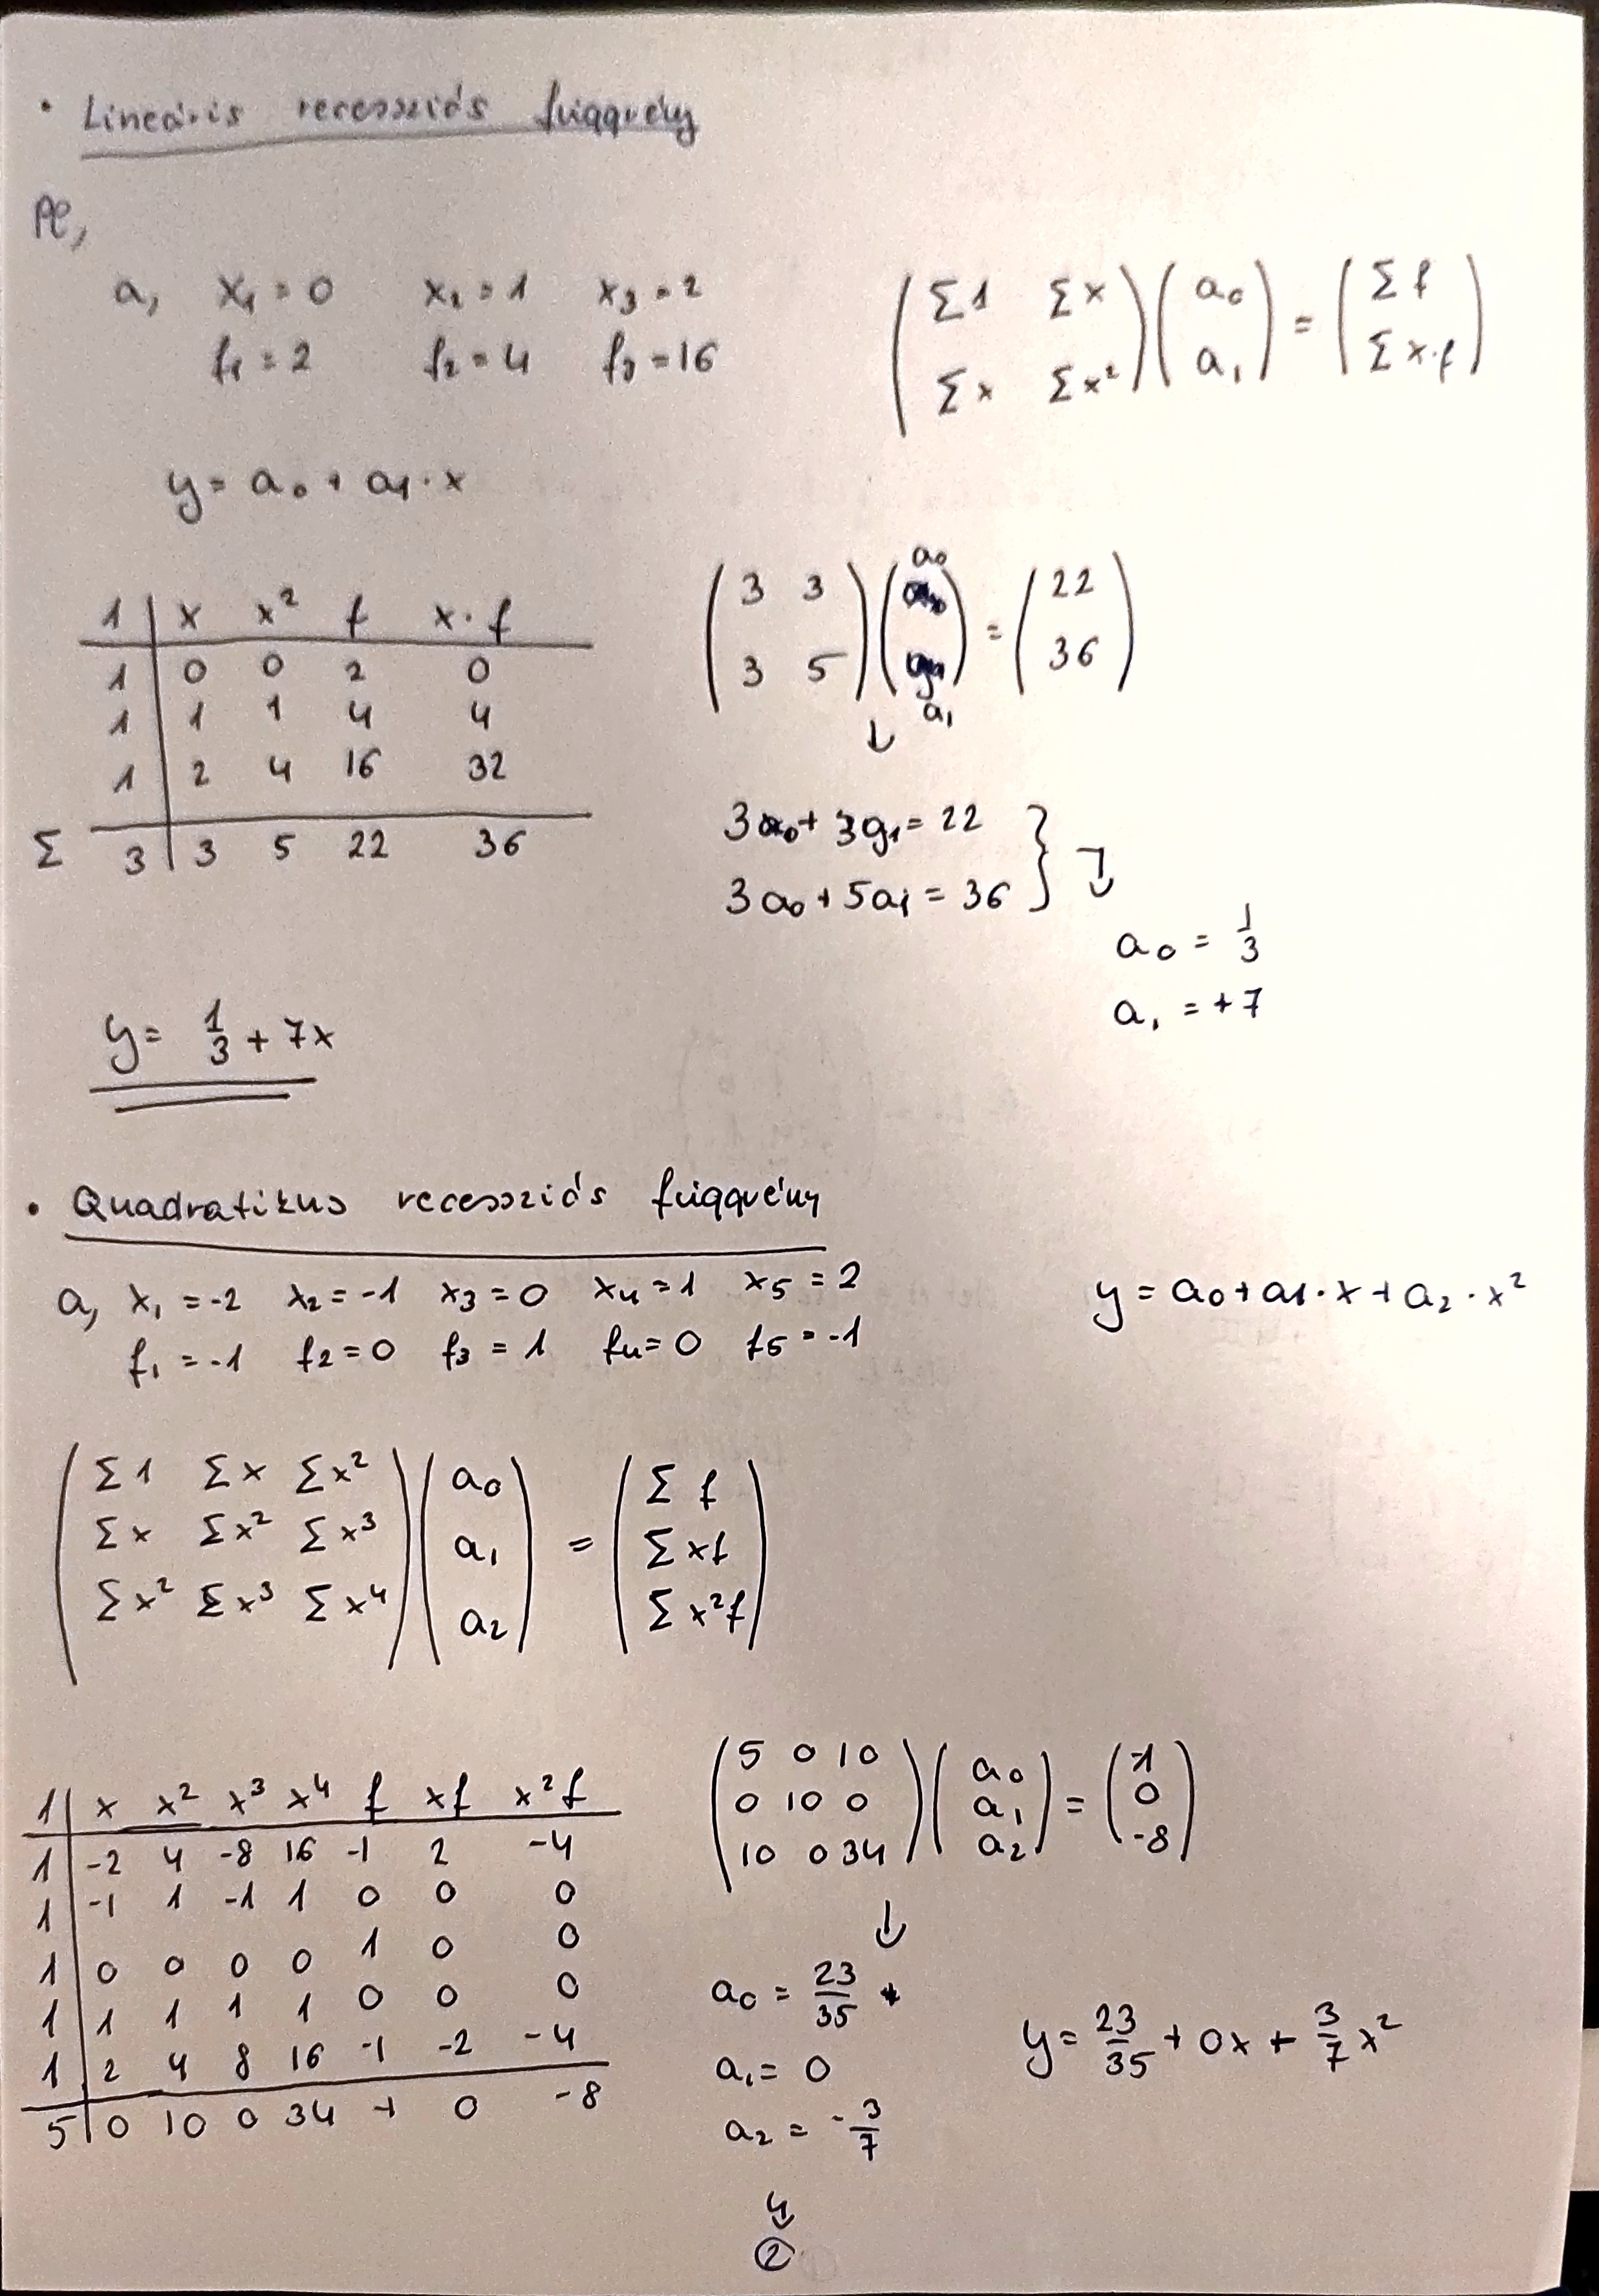 • Lineáris recessziós függvény
Pl,
a, x₁ = 0 x₂ = 1 x₃ = 2
f₁ = 2 f₂ = 4 f₃ = 16
( Σ1 Σx ) ( a₀ ) = ( Σf )
( Σx Σx² ) ( a₁ ) ( Σx·f )
y = a₀ + a₁·x
1 | x x² f x·f
1 | 0 0 2 0
1 | 1 1 4 4
1 | 2 4 16 32
Σ 3 | 3 5 22 36
( 3 3 ) ( a₀ ) = ( 22 )
( 3 5 ) ( a₁ ) ( 36 )
↓
3a₀ + 3a₁ = 22
3a₀ + 5a₁ = 36 } ↓
a₀ = 1/3
a₁ = +7
y = 1/3 + 7x
• Quadratikus recessziós függvény
a, x₁ = -2 x₂ = -1 x₃ = 0 x₄ = 1 x₅ = 2
f₁ = -1 f₂ = 0 f₃ = 1 f₄ = 0 f₅ = -1
y = a₀ + a₁·x + a₂·x²
( Σ1 Σx Σx² ) ( a₀ ) = ( Σf )
( Σx Σx² Σx³ ) ( a₁ ) ( Σxf )
( Σx² Σx³ Σx⁴ ) ( a₂ ) ( Σx²f )
1 | x x² x³ x⁴ f xf x²f
1 | -2 4 -8 16 -1 2 -4
1 | -1 1 -1 1 0 0 0
1 | 0 0 0 0 1 0 0
1 | 1 1 1 1 0 0 0
1 | 2 4 8 16 -1 -2 -4
5 | 0 10 0 34 -1 0 -8
( 5 0 10 ) ( a₀ ) = ( -1 )
( 0 10 0 ) ( a₁ ) ( 0 )
( 10 0 34 ) ( a₂ ) ( -8 )
↓
a₀ = 23/35
a₁ = 0
a₂ = -3/7
y = 23/35 + 0x + 3/7 x²
↳
②